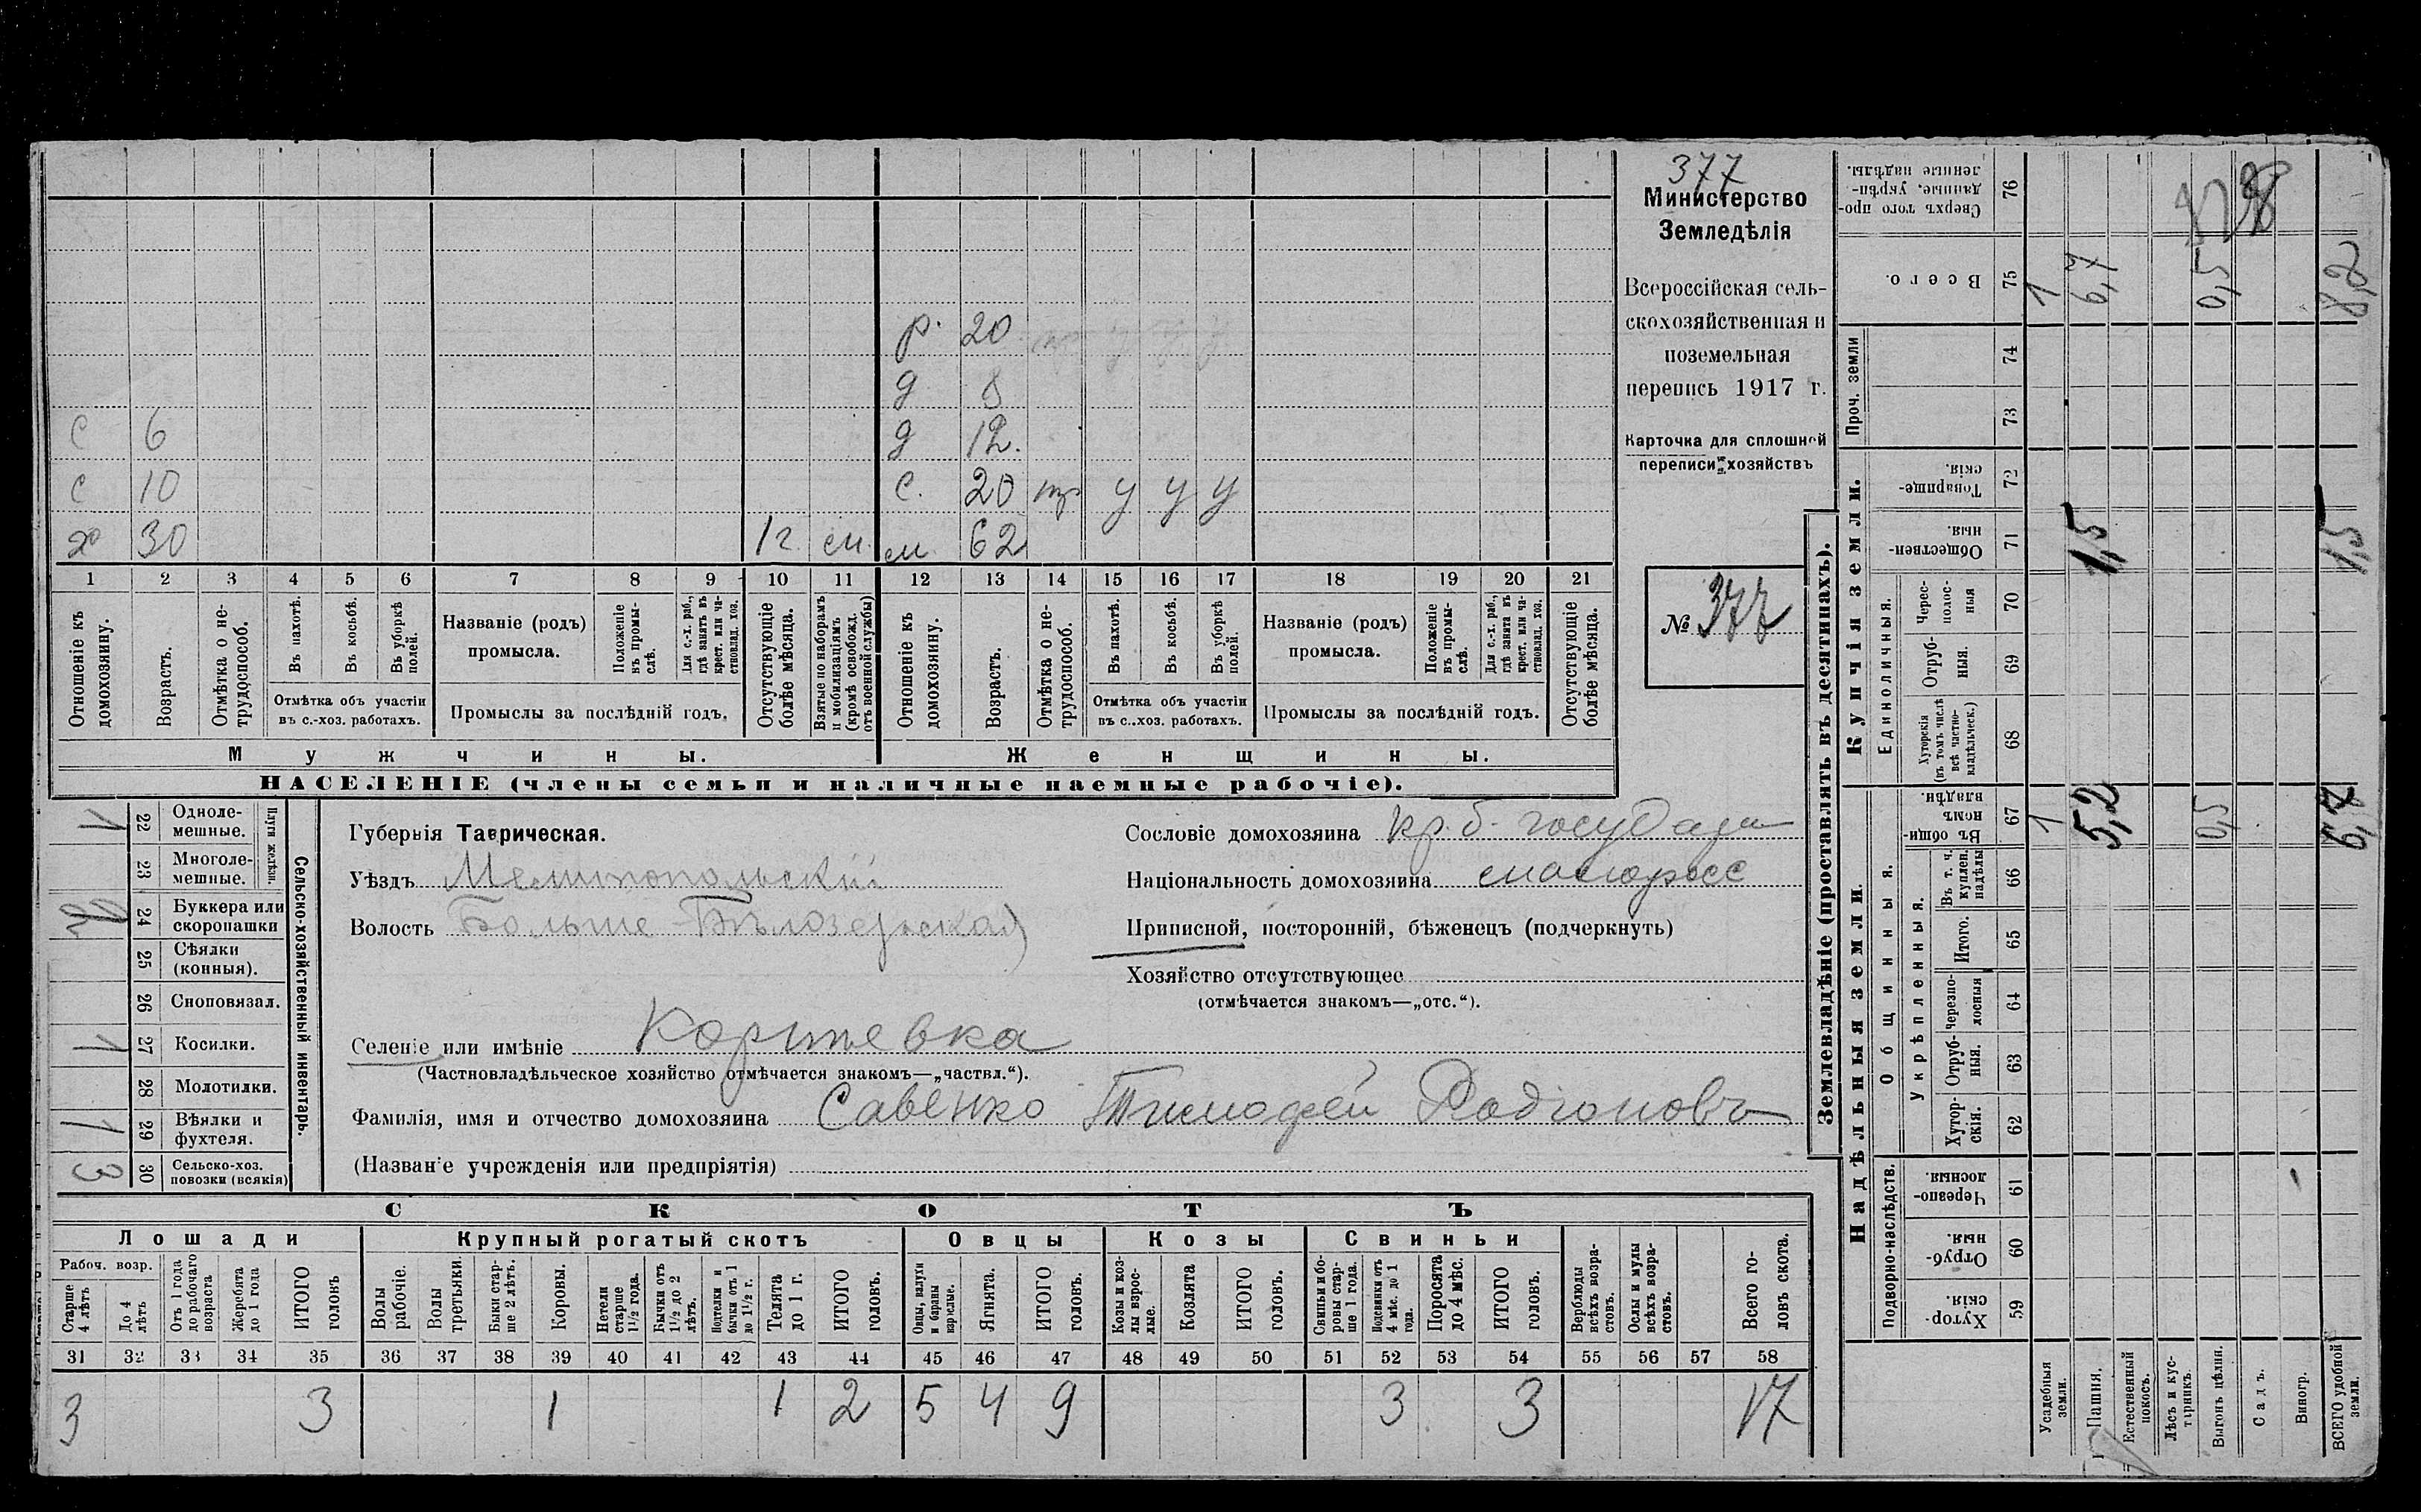 377
Министерство
Земледѣлія
Всероссійская сель-
скохозяйственная и
поземельная
перепись 1917 г.
Карточка для сплошной
переписи хозяйствъ
№ 377
р. 20
д 8
с 6 д 12.
с 10 с. 20 нр у у у
х 30 1 г. м. м. 62
1 2 3 4 5 6 7 8 9 10 11 12 13 14 15 16 17 18 19 20 21
Отношеніе къ домохозяину.
Возрастъ.
Отмѣтка о не-трудоспособ.
Въ пахотѣ.
Въ косьбѣ.
Въ уборкѣ полей.
Отмѣтка объ участіи
въ с.-хоз. работахъ.
Названіе (родъ)
промысла.
Положеніе въ промы-слѣ.
Для с.-х. раб., гдѣ занятъ въ крест. или ча-стновлад. хоз.
Промыслы за послѣдній годъ.
Отсутствующіе болѣе мѣсяца.
Взятые по наборамъ и мобилизаціямъ (кромѣ освобожд. отъ военной службы)
Отношеніе къ домохозяину.
Возрастъ.
Отмѣтка о не-трудоспособ.
Въ пахотѣ.
Въ косьбѣ.
Въ уборкѣ полей.
Отмѣтка объ участіи
въ с.-хоз. работахъ.
Названіе (родъ)
промысла.
Положеніе въ промы-слѣ.
Для с.-х. раб., гдѣ занята въ крест. или ча-стновлад. хоз.
Промыслы за послѣдній годъ.
Отсутствующіе болѣе мѣсяца.
Мужчины. Женщины.
НАСЕЛЕНІЕ (члены семьи и наличные наемные рабочіе).
Сельско-хозяйственный инвентарь.
Плуги желѣзн.
1 22 Одноле-мешные.
23 Многоле-мешные.
24 Буккера или скоропашки
25 Сѣялки (конныя).
26 Сноповязал.
1 27 Косилки.
28 Молотилки.
1 29 Вѣялки и фухтеля.
3 30 Сельско-хоз. повозки (всякія)
Губернія Таврическая.
Уѣздъ Мелитопольскій
Волость Больше-Бѣлозерская
Селеніе или имѣніе Кортевка
(Частновладѣльческое хозяйство отмѣчается знакомъ—„частвл.“).
Фамилія, имя и отчество домохозяина Савенко Тимофей Родіоновъ
(Названіе учрежденія или предпріятія)
Сословіе домохозяина кр. б. государ
Національность домохозяина малоросс
Приписной, посторонній, бѣженецъ (подчеркнуть)
Хозяйство отсутствующее
(отмѣчается знакомъ—„отс.“).
СКОТЪ
Лошади Крупный рогатый скотъ Овцы Козы Свиньи
Рабоч. возр.
Старше 4 лѣтъ
До 4 лѣтъ
Отъ 1 года до рабочаго возраста
Жеребята до 1 года
ИТОГО головъ
Волы рабочіе.
Волы третьяки.
Быки стар-ше 2 лѣтъ.
Коровы.
Нетели старше 1½ года.
Бычки отъ 1½ до 2 лѣтъ.
Подтелки и бычки отъ 1 до 1½ г.
Телята до 1 г.
ИТОГО головъ.
Овцы, валухи и бараны взрослые.
Ягнята.
ИТОГО головъ.
Козы и коз-лы взрос-лые.
Козлята
ИТОГО головъ.
Свиньи и бо-ровы стар-ше 1 года.
Подсвинки отъ 4 мѣс. до 1 года.
Поросята до 4 мѣс.
ИТОГО головъ.
Верблюды всѣхъ возра-стовъ.
Ослы и мулы всѣхъ возра-стовъ.
Всего го-ловъ скота.
31 32 33 34 35 36 37 38 39 40 41 42 43 44 45 46 47 48 49 50 51 52 53 54 55 56 57 58
3 3 1 1 2 5 4 9 3 3 17
Землевладѣніе (проставлять въ десятинахъ).
Надѣльныя земли.
Купчія земли.
Проч. земли
Подворно-наслѣдств.
Общинныя.
Укрѣпленныя.
Единоличныя.
Хутор-скія. 59
Отруб-ныя. 60
Черезпо-лосныя. 61
Хутор-скія. 62
Отруб-ныя. 63
Черезпо-лосныя 64
Итого. 65
Въ т. ч. куплен. надѣлы 66
Въ общи-номъ владѣн. 67
Хуторскія (въ томъ числѣ всѣ частно-владѣльческ.) 68
Отруб-ныя. 69
Черес-полос-ныя 70
Обществен-ныя. 71
Товарище-скія. 72
73
74
Всего. 75
Сверхъ того про-данные, укрѣп-ленные надѣлы. 76
Усадебныя земли. 1 1
Пашня. 5,2 1,5 6,7
Естественный покосъ.
Лѣсъ и кус-тарникъ.
Выгонъ цѣлин. 0,5 0,5
Садъ.
Виногр.
ВСЕГО удобной земли. 6,7 1,5 8,2